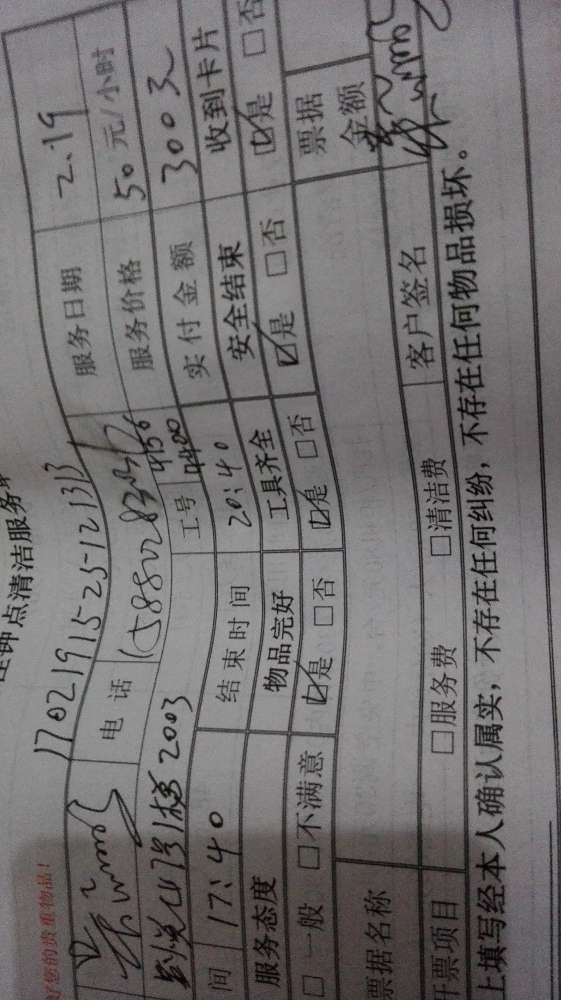 住钟点清洁服务
好您的贵重物品!
1702191525-121313
电话 服务日期 2.19
服务价格 50元/小时
2003 工号 4156 4400 实付金额 300元
间 17:40 结束时间 20:40 安全结束 收到卡片
服务态度 物品完好 工具齐全 ☑是 □否 ☑是 □否
□一般 □不满意 ☑是 □否 ☑是 □否 票据金额
票据名称
开票项目 □服务费 □清洁费 客户签名
上填写经本人确认属实，不存在任何纠纷，不存在任何物品损坏。